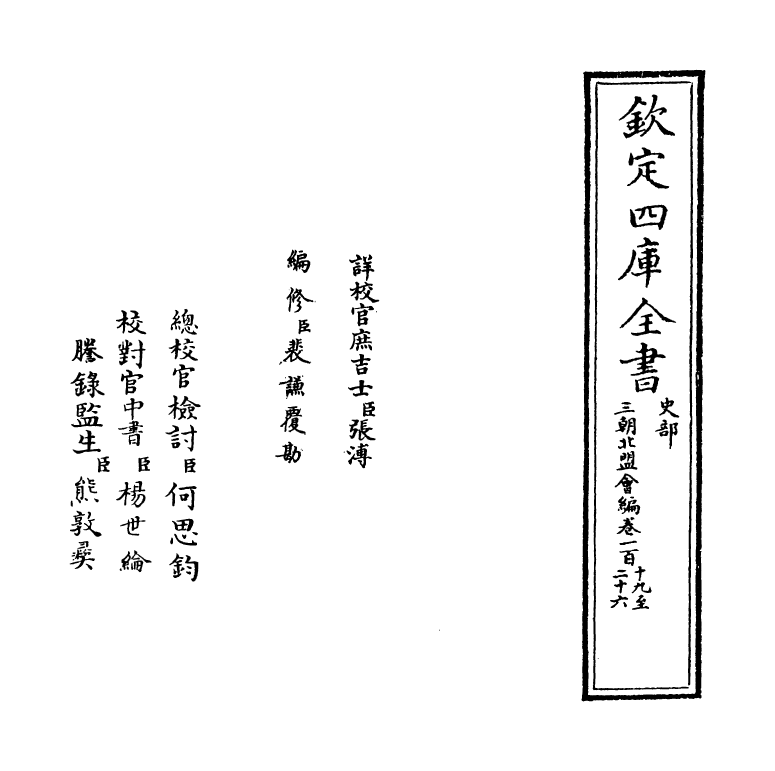 欽定四庫全書
史部
三朝北盟會編卷一百
十九至
二十六
詳校官庶吉士臣張溥
編修臣裴謙覆勘
總校官檢討臣何思鈞
校對官中書臣楊世綸
謄錄監生臣熊敦彛